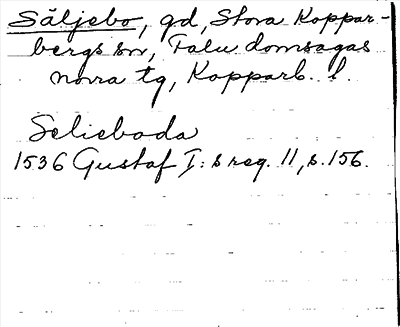 Säljebo, gd, Stora Koppar-
bergs sn, Falu domsagas
norra tg, Kopparb. l.
Selieboda
1536 Gustaf I: s reg. 11, s. 156.